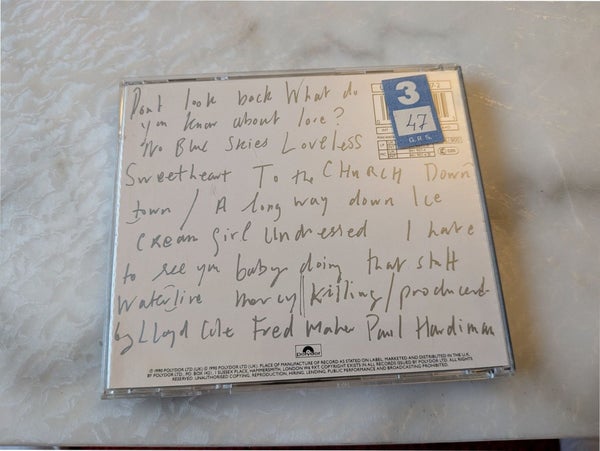 Dont look back What do
you know about love?
No Blue Skies Loveless
Sweetheart To the CHURCH Down
town / A long way down Ice
cream girl Undressed I hate
to see you baby doing that stuff
Waterline Mercy Killing / produced
by Lloyd Cole Fred Maher Paul Hardiman
3
47
G.R.S.
polydor
℗ 1990 POLYDOR LTD (UK) © 1990 POLYDOR LTD (UK). PLACE OF MANUFACTURE OF RECORD AS STATED ON LABEL. MARKETED AND DISTRIBUTED IN THE U.K.
BY POLYDOR LTD., P.O. BOX 1421, 1 SUSSEX PLACE, HAMMERSMITH, LONDON W6 9XT. COPYRIGHT EXISTS IN ALL RECORDS ISSUED BY POLYDOR LTD. ALL RIGHTS
RESERVED. UNAUTHORISED COPYING, REPRODUCTION, HIRING, LENDING, PUBLIC PERFORMANCE AND BROADCASTING PROHIBITED.